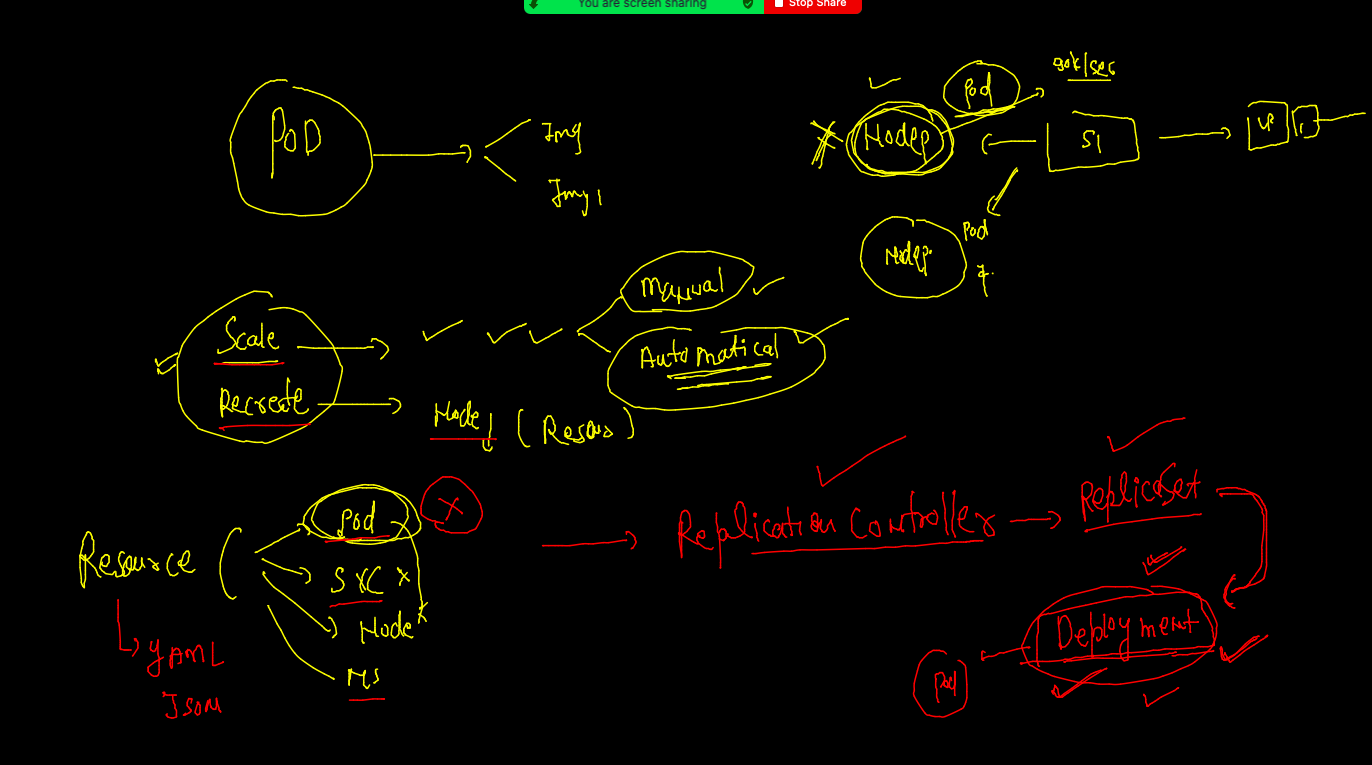 You are screen sharing Stop Share
POD
Img
Img 1
Pod
50k/sec
Nodep
S1
LP
Nodep
Pod
Scale
Manual
Automatical
Recreate
Node (Resous)
Resource
Pod
X
SVC X
Node
NS
YAML
Json
Replication Controller
ReplicaSet
Deployment
Pod